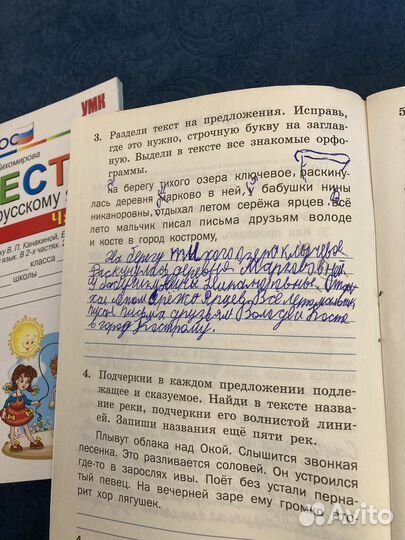 УМК
ихомирова
ЕСТ
русскому я
В. П. Канакиной, В
й язык. В 2-х частях. 2
класса
школы
3. Раздели текст на предложения. Исправь,
где это нужно, строчную букву на заглав-
ную. Выдели в тексте все знакомые орфо-
граммы.
на берегу тихого озера ключевое, раскину-
лась деревня марково в ней, у бабушки нины
никаноровны, отдыхал летом серёжа ярцев всё
лето мальчик писал письма друзьям володе
и косте в город кострому,
На берегу тихого озера ключевое
Раскинулась деревня Марково в ней
У бабушки Нины Никаноровны. Отды
хал летом Серёжа Ярцев. Всё лето мальчик
писал письма друзьям Володе и Косте
в город Кострому.
4. Подчеркни в каждом предложении подле-
жащее и сказуемое. Найди в тексте назва-
ние реки, подчеркни его волнистой лини-
ей. Запиши названия ещё пяти рек.
Плывут облака над Окой. Слышится звонкая
песенка. Это разливается соловей. Он устроился
где-то в зарослях ивы. Поёт без устали перна-
тый певец. На вечерней заре ему громко вто-
рит хор лягушек.
Avito